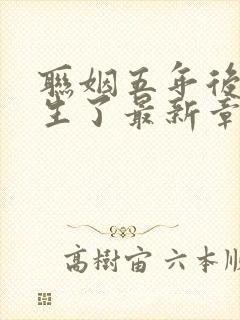 聯姻五年後
生了最新章
高樹宙 六本順